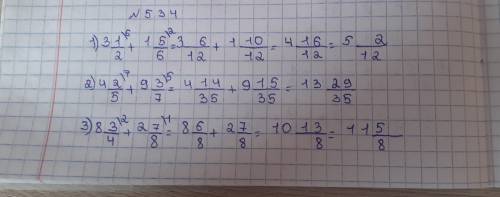 №534
1) 3 1/2\6 + 1 5/6\2 = 3 6/12 + 1 10/12 = 4 16/12 = 5 2/12
2) 4 2/5\7 + 9 3/7\5 = 4 14/35 + 9 15/35 = 13 29/35
3) 8 3/4\2 + 2 7/8\1 = 8 6/8 + 2 7/8 = 10 13/8 = 11 5/8